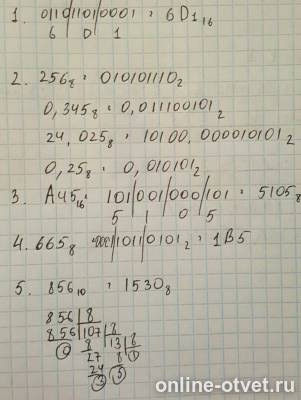 1. 0110|1101|0001 = 6D1₁₆
6 D 1
2. 256₈ = 010101110₂
0,345₈ = 0,011100101₂
24,025₈ = 10100,000010101₂
0,25₈ = 0,010101₂
3. A45₁₆ = 101|001|000|101 = 5105₈
5 1 0 5
4. 665₈ = 0001|1011|0101₂ = 1B5
5. 856₁₀ = 1530₈
856 | 8
856 | 107 | 8
0 8 13 | 8
27 8 1
24 5
3
online-otvet.ru